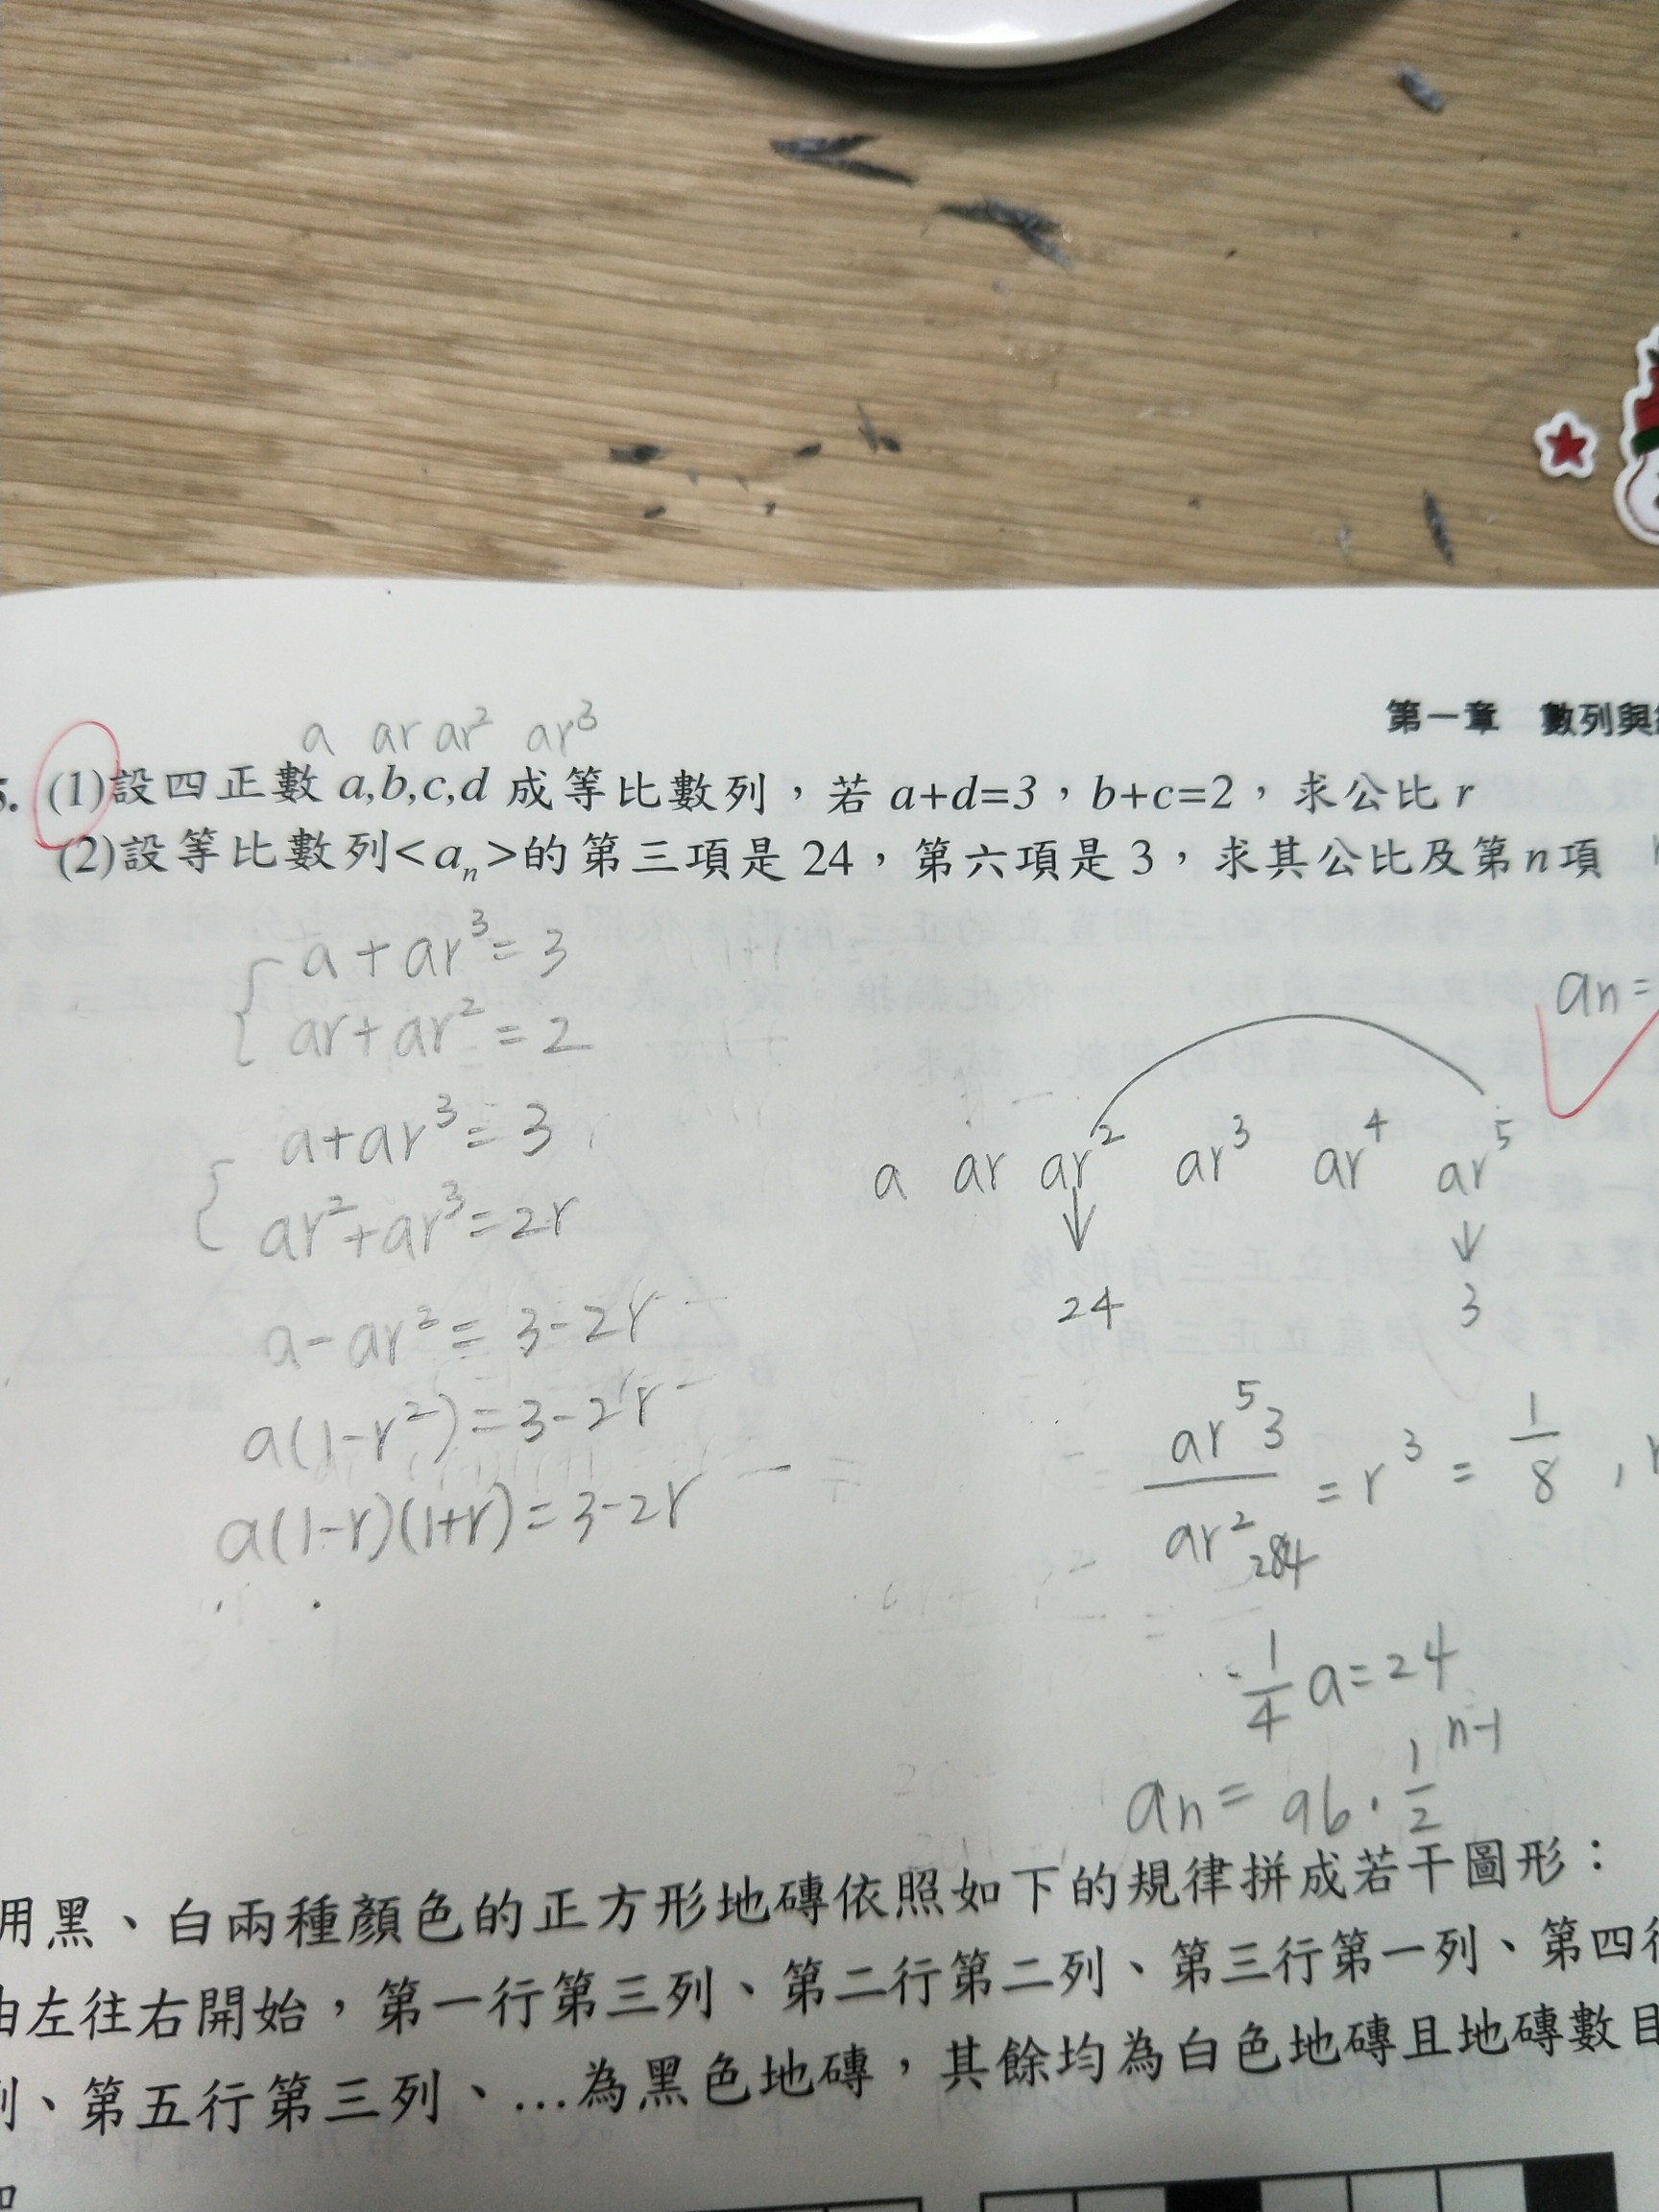 第一章 數列與
a ar ar² ar³
(1)設四正數 a,b,c,d 成等比數列，若 a+d=3，b+c=2，求公比 r
(2)設等比數列<aₙ>的第三項是 24，第六項是 3，求其公比及第 n 項
a + ar³ = 3
ar + ar² = 2
a + ar³ = 3
ar² + ar³ = 2r
a - ar² = 3 - 2r
a(1-r²) = 3 - 2r
a(1-r)(1+r) = 3 - 2r
an =
a ar ar² ar³ ar⁴ ar⁵
24 3
ar⁵ 3 / ar² 24 = r³ = 1/8 ,
1/4 a = 24
an = 96 · 1/2 ⁿ⁻¹
用黑、白兩種顏色的正方形地磚依照如下的規律拼成若干圖形：
由左往右開始，第一行第三列、第二行第二列、第三行第一列、第四行
列、第五行第三列、…為黑色地磚，其餘均為白色地磚且地磚數目